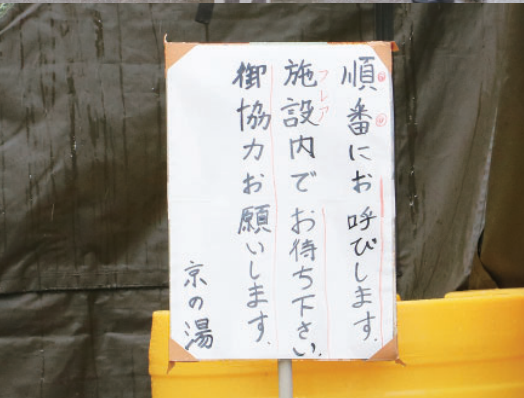 順番にお呼びします.
フレア
施設内でお待ち下さい.
御協力お願いします.
京の湯